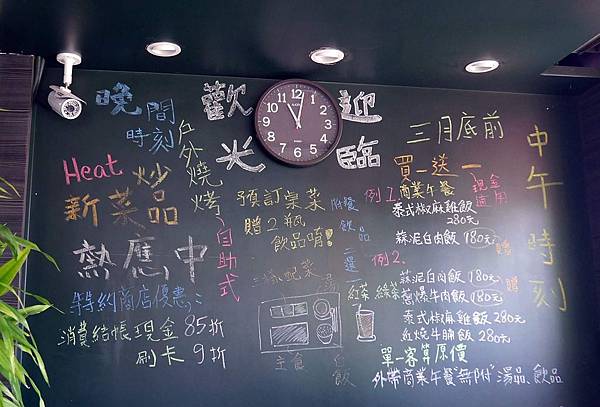 晚間
時刻
戶外燒烤
自助式
Heat
炒
新菜品
熱應中
特約商店優惠：
消費結帳現金85折
刷卡9折
歡迎
光臨
12
1
2
3
4
5
6
7
8
9
10
11
預訂桌菜
贈2瓶
飲品唷!
附餐
飲品
三選一
紅茶 綠茶
三樣配菜
湯
主食
白飯
三月底前
買一送一
現金
適用
例1.
商業午餐
泰式椒麻雞飯
280元
蒜泥白肉飯 180元
贈
例2.
蒜泥白肉飯 180元
蔥爆牛肉飯 180元
贈
泰式椒麻雞飯 280元
紅燒牛腩飯 280元
單一客算原價
外帶商業午餐"無附"湯品、飲品
中午時刻